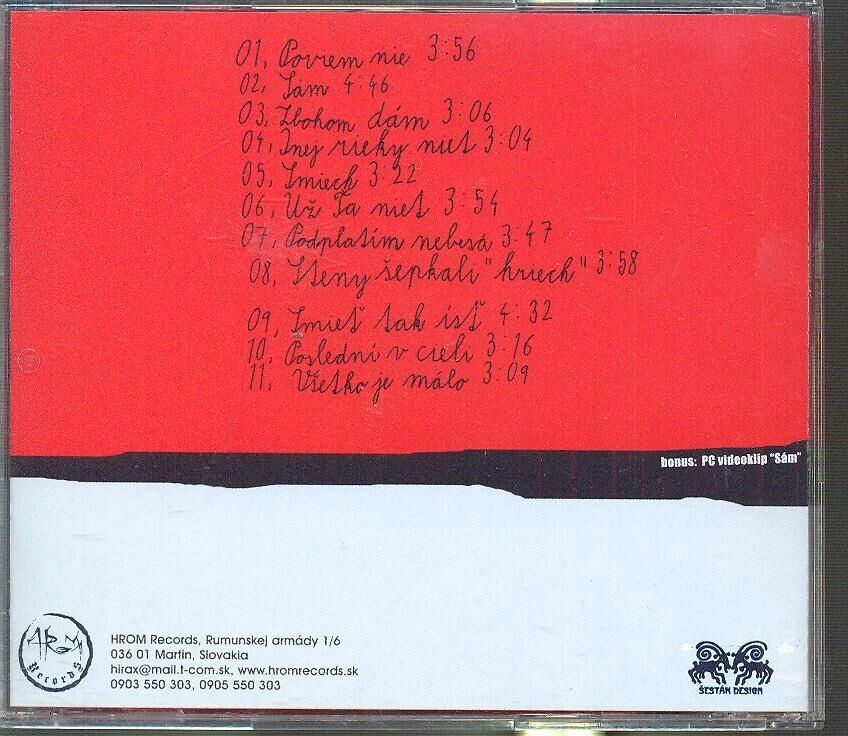 01, Poviem nie 3:56
02, Sám 4:46
03, Zbohom dám 3:06
04, Inej rieky niet 3:04
05, Smiech 3:22
06, Už Ťa niet 3:54
07, Podplatím nebesá 3:47
08, Steny šepkali "hriech" 3:58
09, Smieť tak ísť 4:32
10, Poslední v cieli 3:16
11, Všetko je málo 3:09
bonus: PC videoklip "Sám"
HROM Records
HROM Records, Rumunskej armády 1/6
036 01 Martin, Slovakia
hirax@mail.t-com.sk, www.hromrecords.sk
0903 550 303, 0905 550 303
ŠESTÁK DESIGN